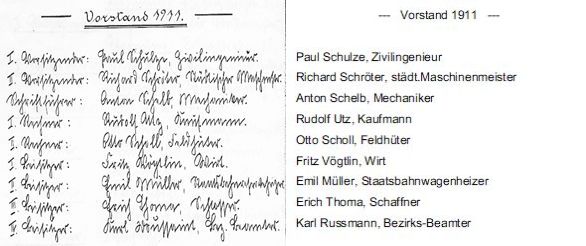 Vorstand 1911.
I. Vorsitzender: Paul Schulze, Zivilingenieur.
II. Vorsitzender: Richard Schröter, Städtischer
Schriftführer: Anton Schelb, Mechaniker.
I. Rechner: Rudolf Utz, Kaufmann.
II. Rechner: Otto Scholl, Feldhüter.
I. Beisitzer: Fritz Vögtlin, Wirt.
II. Beisitzer: Emil Müller, Staatsbahnwagenheizer
III. Beisitzer: Erich Thoma, Schaffner
Beisitzer: Karl Russmann, Bez. Beamter.
--- Vorstand 1911 ---
Paul Schulze, Zivilingenieur
Richard Schröter, städt.Maschinenmeister
Anton Schelb, Mechaniker
Rudolf Utz, Kaufmann
Otto Scholl, Feldhüter
Fritz Vögtlin, Wirt
Emil Müller, Staatsbahnwagenheizer
Erich Thoma, Schaffner
Karl Russmann, Bezirks-Beamter